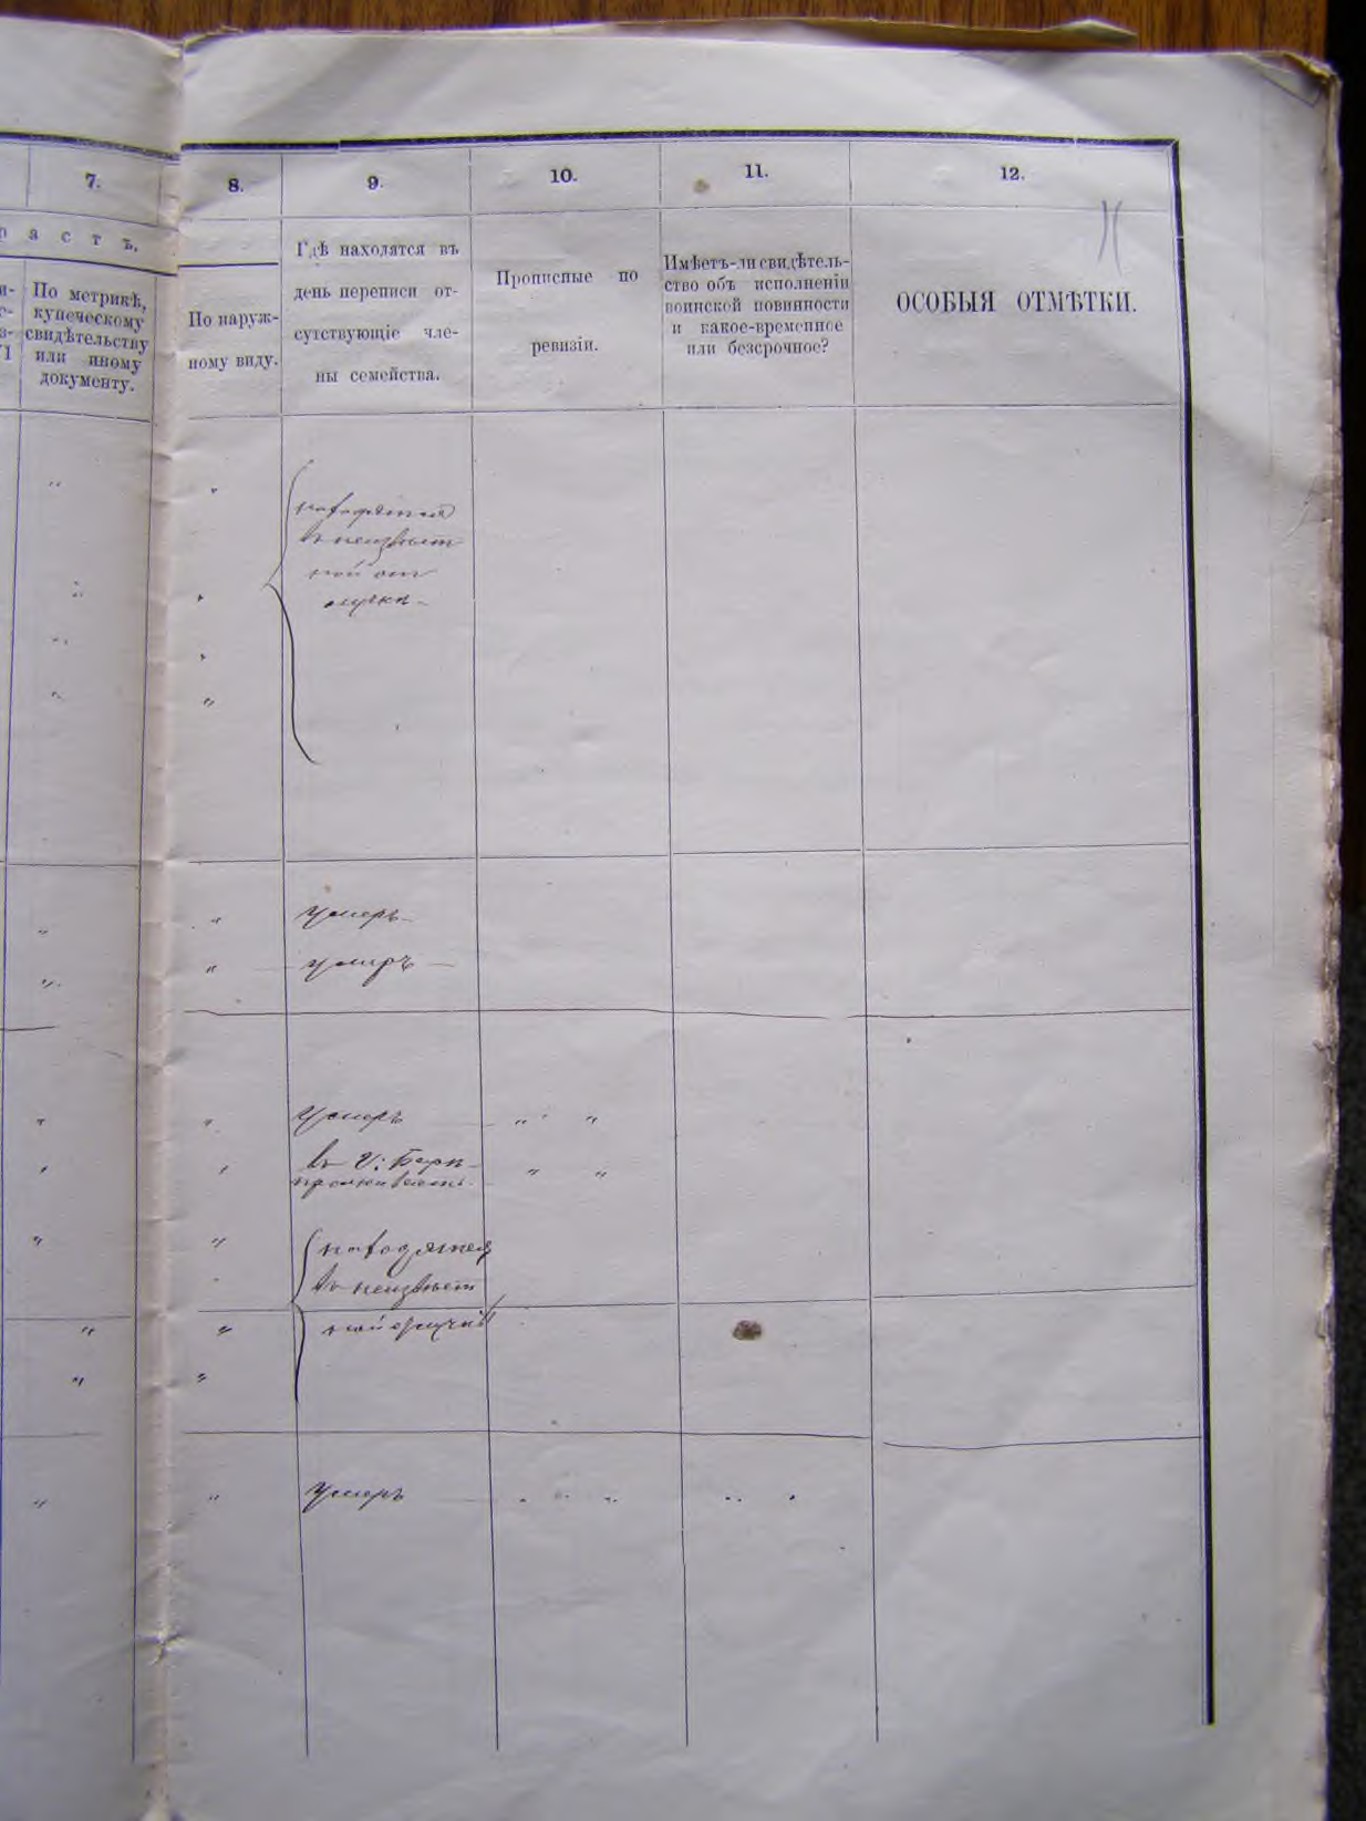 7.
8.
9.
10.
11.
12.
р а с т ъ.
и-
с-
з-
По метрикѣ,
купеческому
свидѣтельству
или иному
документу.
По наруж-
ному виду.
Гдѣ находятся въ
день переписи от-
сутствующіе чле-
ны семейства.
Прописные по
ревизіи.
Имѣетъ-ли свидѣтель-
ство объ исполненіи
воинской повинности
и какое-временное
или безсрочное?
ОСОБЫЯ ОТМѢТКИ.
находятся
въ неизвѣст
ной от
лучки
" "
умеръ
" "
умеръ
" "
умеръ " "
въ г: Барн
проживаетъ " "
" "
находятся
въ неизвѣст
ной
" "
" "
" "
умеръ